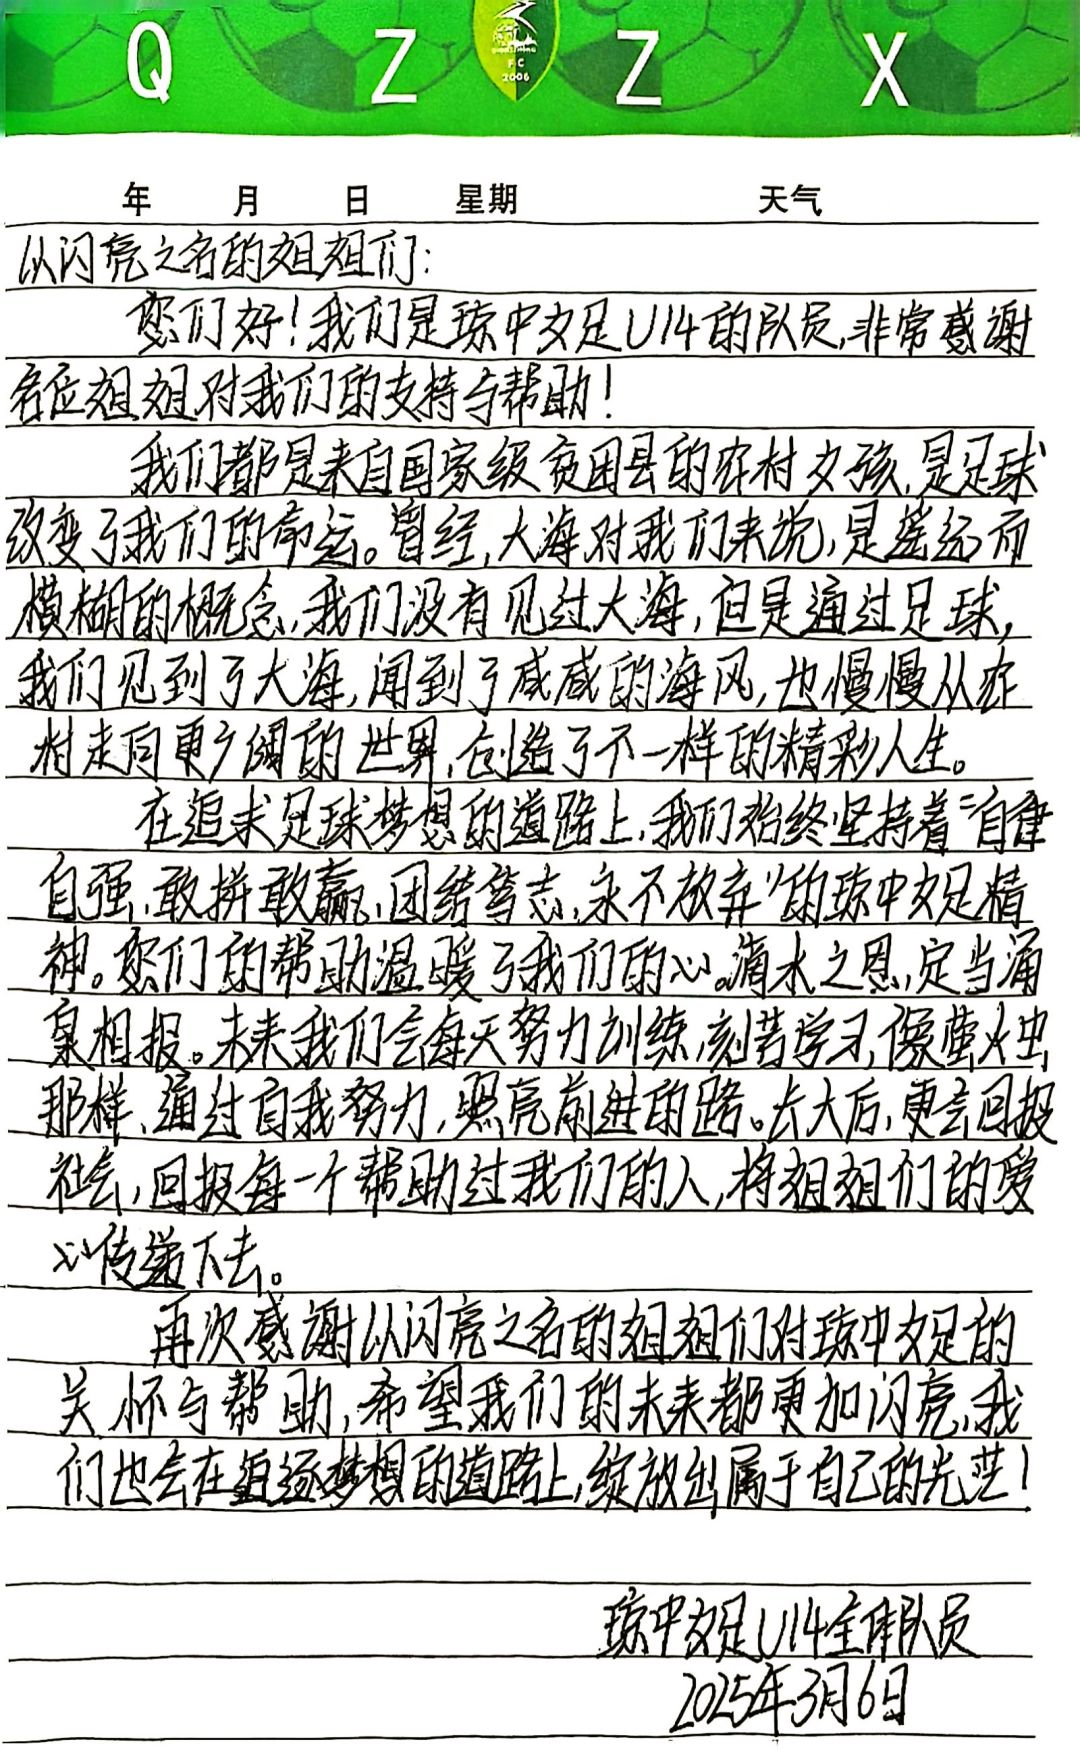 Q Z Z X
FC
2006
年 月 日 星期 天气
以闪亮之名的姐姐们:
您们好!我们是琼中女足U14的队员,非常感谢
各位姐姐对我们的支持与帮助!
我们都是来自国家级贫困县的农村女孩,是足球
改变了我们的命运。曾经,大海对我们来说,是遥远而
模糊的概念,我们没有见过大海,但是通过足球,
我们见到了大海,闻到了咸咸的海风,也慢慢从农
村走向更广阔的世界,创造了不一样的精彩人生。
在追求足球梦想的道路上,我们始终坚持着“自律
自强,敢拼敢赢,团结笃志,永不放弃”的琼中女足精
神。您们的帮助温暖了我们的心。滴水之恩,定当涌
泉相报。未来我们会每天努力训练,刻苦学习,像萤火虫
那样,通过自我努力,照亮前进的路。长大后,更会回报
社会,回报每一个帮助过我们的人,将姐姐们的爱
心传递下去。
再次感谢以闪亮之名的姐姐们对琼中女足的
关怀与帮助,希望我们的未来都更加闪亮,我
们也会在追逐梦想的道路上,绽放出属于自己的光芒!
琼中女足U14全体队员
2025年3月6日